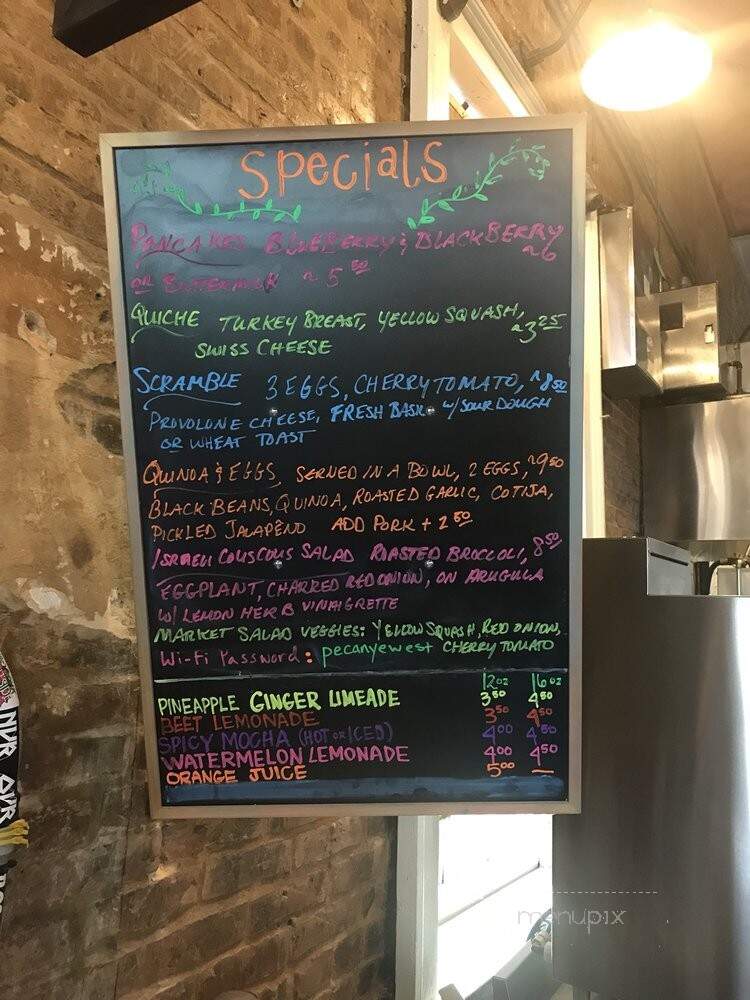 Specials
PANCAKES BLUEBERRY & BLACKBERRY
~6
OR BUTTERMILK ~ 5 50
QUICHE TURKEY BREAST, YELLOW SQUASH, ~3 25
SWISS CHEESE
SCRAMBLE 3 EGGS, CHERRY TOMATO, ~8 50
PROVOLONE CHEESE, FRESH BASIL w/ SOUR DOUGH
OR WHEAT TOAST
QUINOA & EGGS, SERVED IN A BOWL, 2 EGGS, ~9 50
BLACK BEANS, QUINOA, ROASTED GARLIC, COTIJA,
PICKLED JALAPEÑO ADD PORK + 2 50
ISRAELI COUSCOUS SALAD ROASTED BROCCOLI, 8 50
EGGPLANT, CHARRED RED ONION, ON ARUGULA
W/ LEMON HERB VINAIGRETTE
MARKET SALAD VEGGIES: YELLOW SQUASH, RED ONION,
Wi-Fi Password: pecanyewest CHERRY TOMATO
12oz 16oz
PINEAPPLE GINGER LIMEADE 3 50 4 50
BEET LEMONADE 3 50 4 50
SPICY MOCHA (HOT OR ICED) 4 00 4 50
WATERMELON LEMONADE 4 00 4 50
ORANGE JUICE 5 00 —
menupix